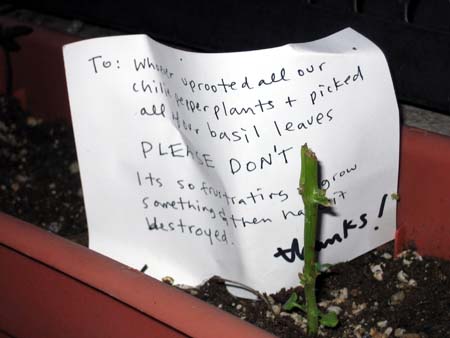 To: Whoever uprooted all our
chili pepper plants + picked
all of our basil leaves
PLEASE DON'T
Its so frustrating to grow
something & then have it
destroyed.
thanks!